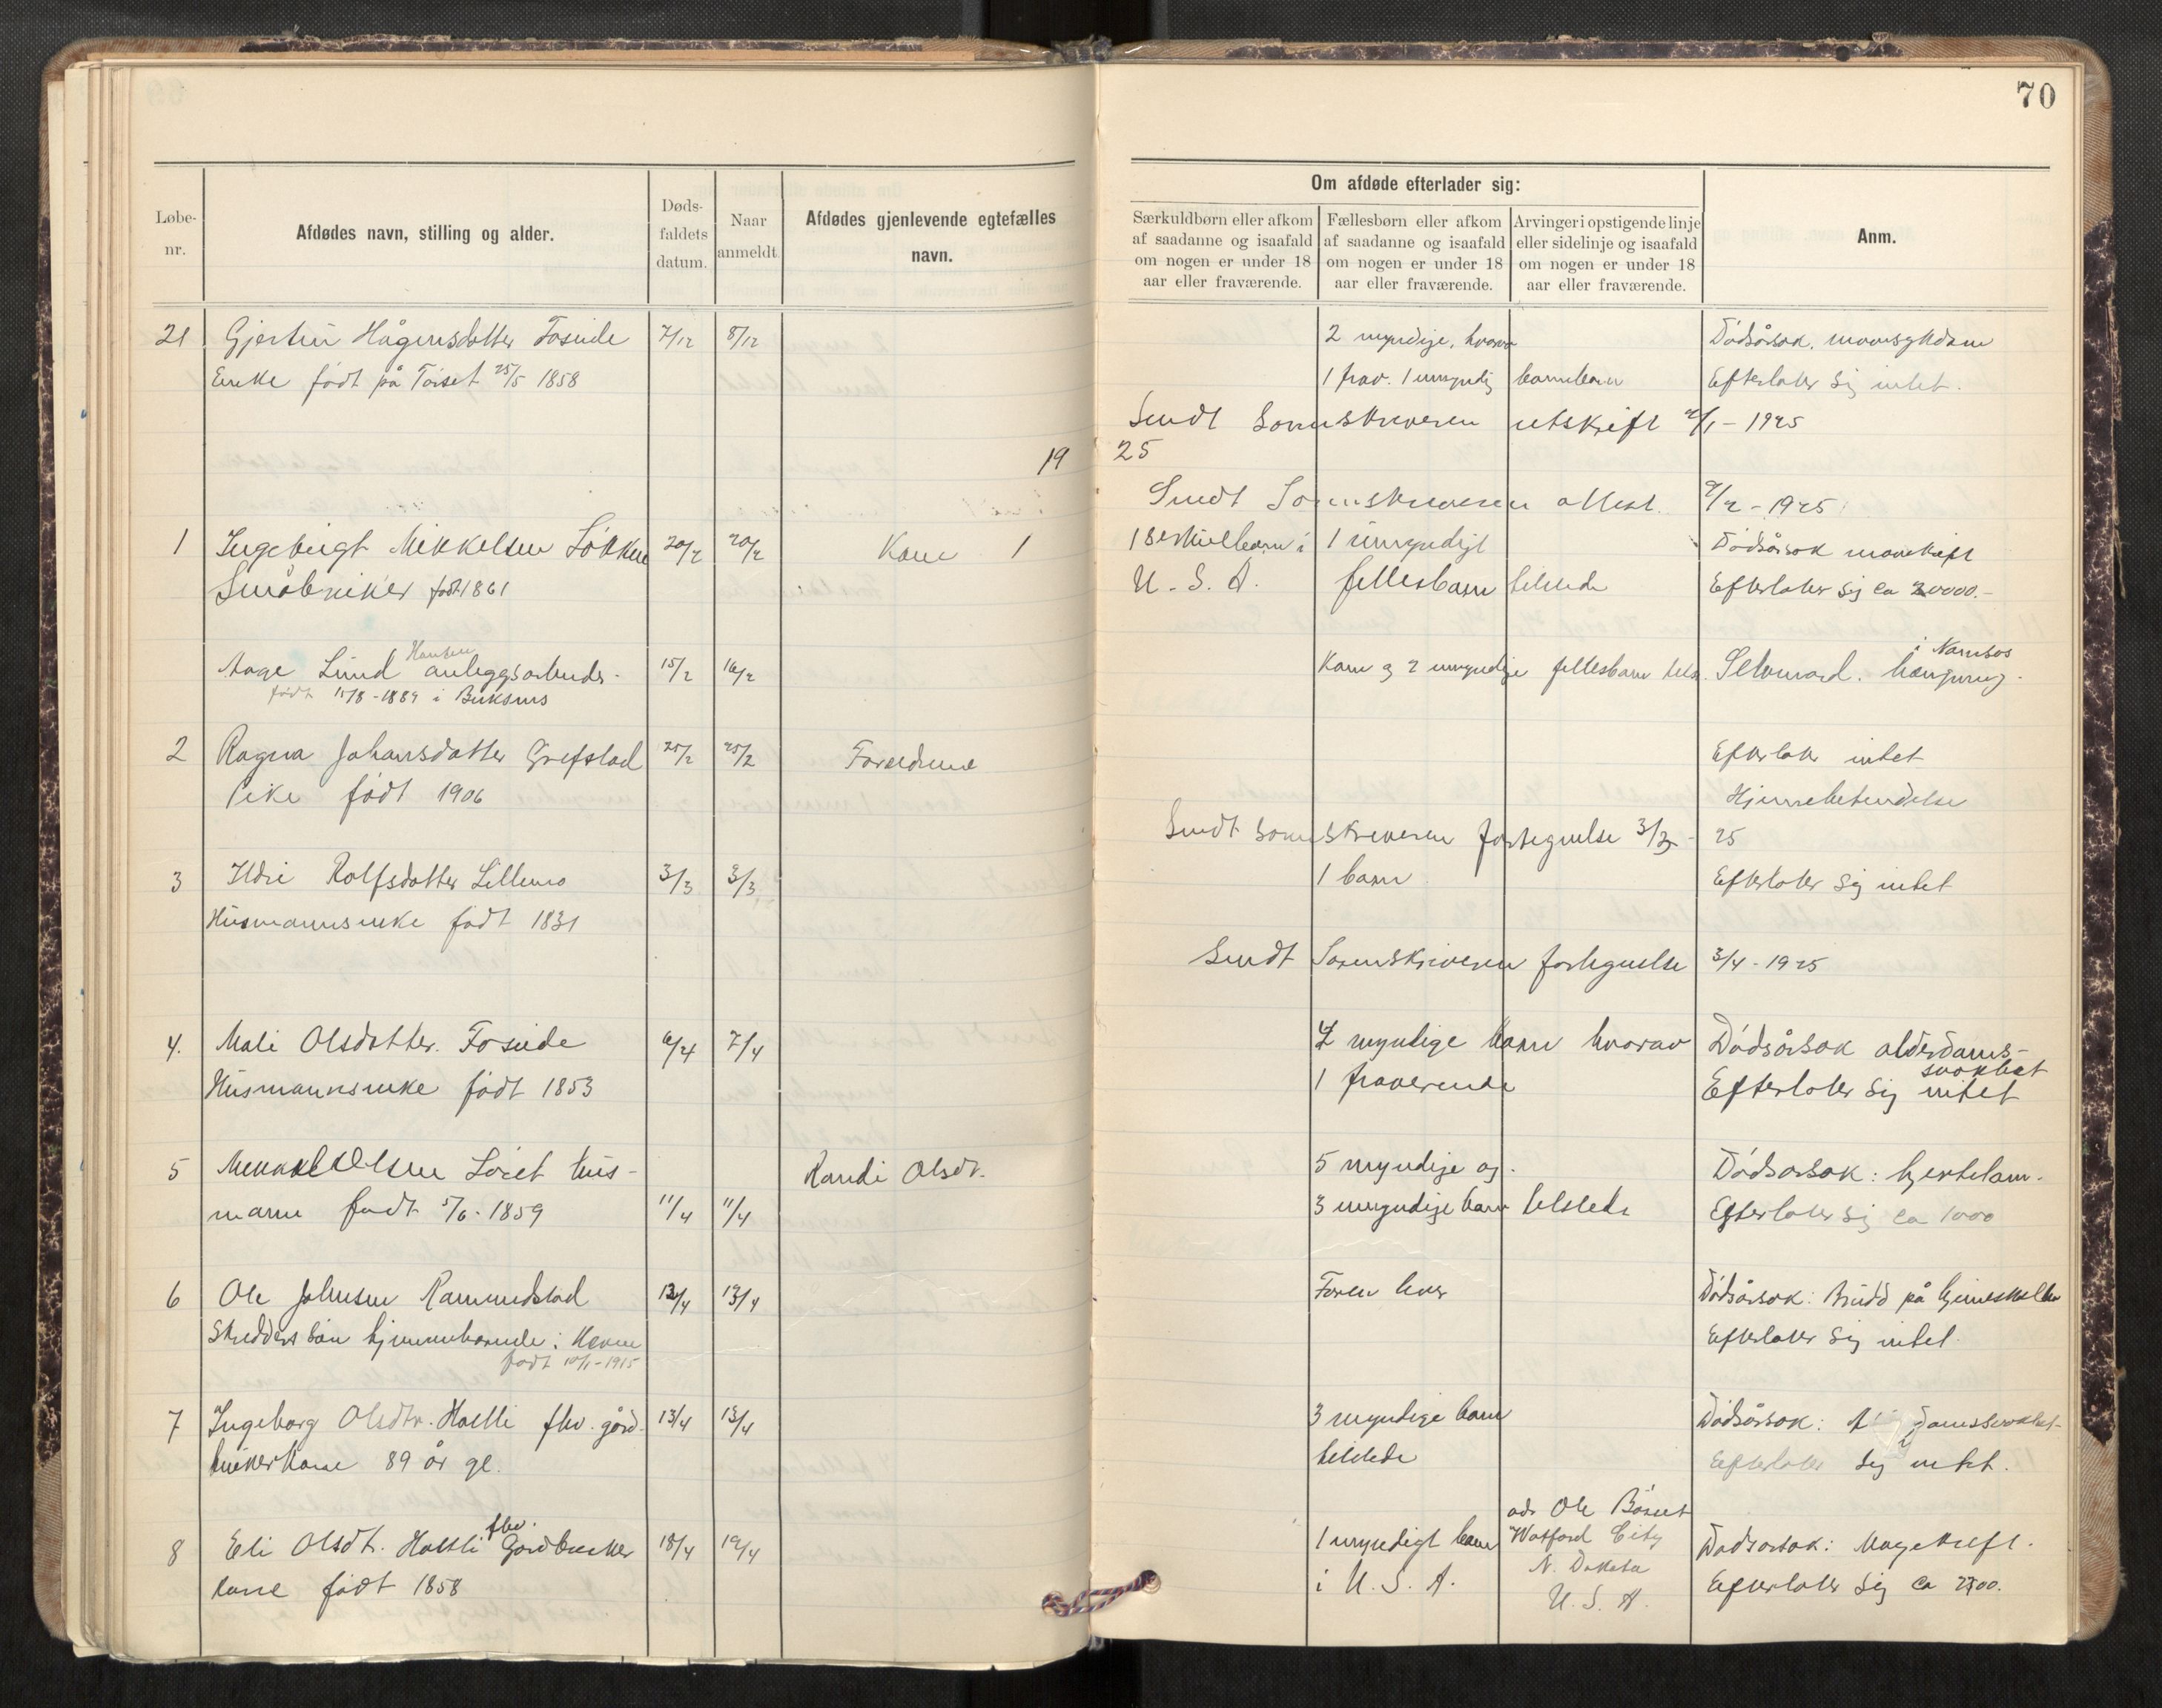 70
Løbe-
nr.
Afdødes navn, stilling og alder.
Døds-
faldets
datum.
Naar
anmeldt.
Afdødes gjenlevende egtefælles
navn.
Om afdøde efterlader sig:
Særkuldbørn eller afkom
af saadanne og isaafald
om nogen er under 18
aar eller fraværende.
Fællesbørn eller afkom
af saadanne og isaafald
om nogen er under 18
aar eller fraværende.
Arvinger i opstigende linje
eller sidelinje og isaafald
om nogen er under 18
aar eller fraværende.
Anm.
21 Hågensdatter Foseide 7/12 8/12 2 myndige, hvorav Dödsårsak.
Enke födt på Törset 25/5 1858 1 frav. 1 umyndig barnebarn Efterlater sig intet.
Sendt Sorenskriveren utskrift 2/1 - 1925
19 25
Sendt Sorenskriveren attest. 9/2 - 1925
1 Ingebrigt Mikkelsen Lökken 20/2 20/2 Kone 1 1 serkulbarn i 1 umyndigt Dödsårsak mavekreft
Småbruker födt 1861 U. S. A. fellesbarn tilstede Efterlater sig ca 20000.-
Aage Lund Hansen anleggsarbeider- 15/2 16/2 Kone og 2 umyndige fellesbarn Selvmord. hængning. i Namsos
födt 15/8 - 1889 i Buksnes
2 Ragna Johansdatter Grefstad 25/2 25/2 Foreldrene Efterlater intet
Pike födt 1906 Hjernebetendelse
Sendt Sorenskriveren fortegnelse 3/3 - 25
3 Ildri Rolfsdatter Lillemo 3/3 3/3 1 barn Efterlater sig intet
Husmannsenke födt 1831
Sendt Sorenskriveren fortegnelse 3/4 - 1925
4. Mali Olsdatter. Foseide 6/4 7/4 myndige barn hvorav Dödsårsak alderdoms-
svakhet
Husmannsenke födt 1853 1 fraverende Efterlater sig intet
5 Mikkel Olsen Löset hus- Randi Olsdt. 5 myndige og. Dödsarsak: hjertelam.
mann födt 5/6 - 1859 11/4 11/4 3 umyndige barn tilstede Efterlater sig ca 1000
6 Ole Johnsen Ramundstad 13/4 13/4 Faren lever Dödsårsak: Brudd på hjerneskallen
Skredders sön hjemmhörende i Hevne Efterlater sig intet
födt 10/1 - 1915
7 Ingeborg Olsdtr. Holtli fhv. gård- 13/4 13/4 3 myndige barn Dödsårsak:
brukerkone 89 år gl. tilstede Efterlater sig intet.
8 Eli Olsdt. Holtli fhv. Gardbruker 18/4 19/4 1 myndigt barn adr Ole Böset Dödsarsak: Mavekreft.
kone födt 1858 i U. S. A. Watford City
N. Dakota
U. S. A. Efterlater sig ca